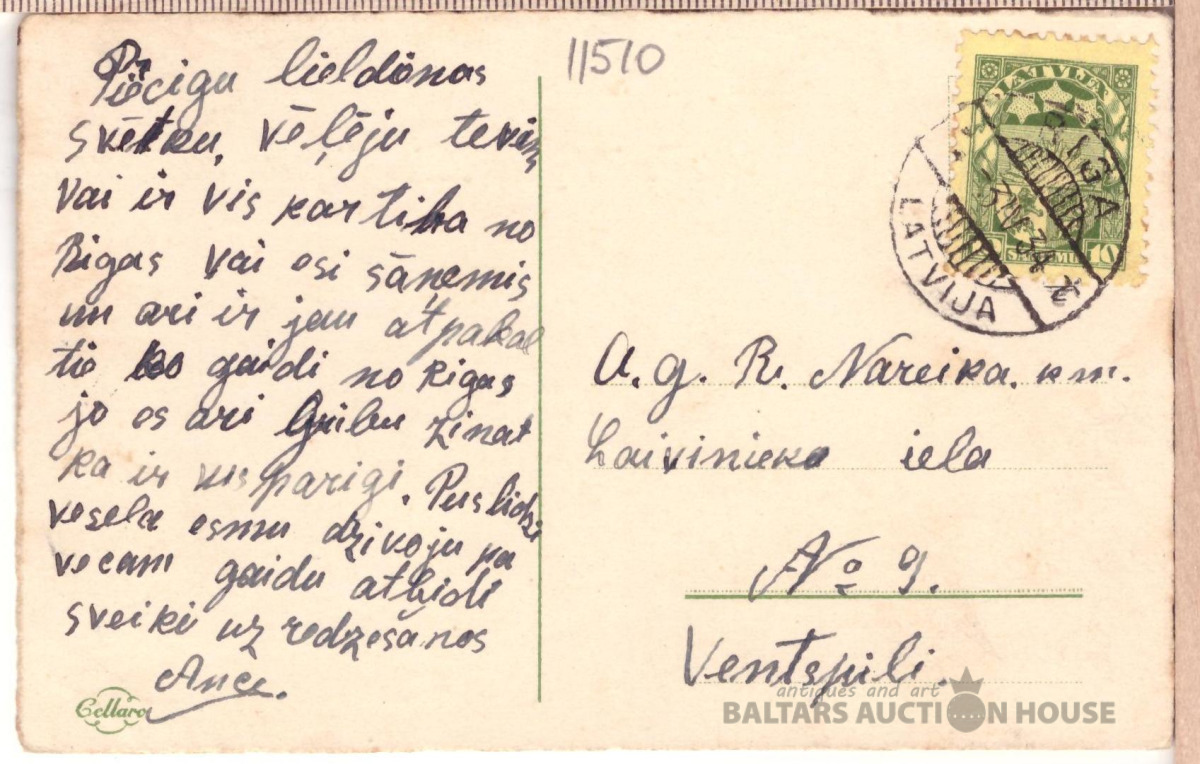 11510
Priecigu lieldönas
svētku, vēļēju tevim
Vai ir vis kartiba no
Rigas vai esi sāņemis
un ari ir jau atpakal
tie ko gaidi no Rigas
jo es ari Gribu zinat
ka ir vis parigi. Puslidzi
vesela esmu dzivoju pa
vecam gaidu atbidi
sveiki uz redzešanos
Anče.
Cellaro
LATVIJA
10
RIGA
-3 IV 34
LATVIJA
A. g. R. Nareika. km.
Laivinieku iela
No 9.
Ventspili.
antiques and art
BALTARS AUCTION HOUSE